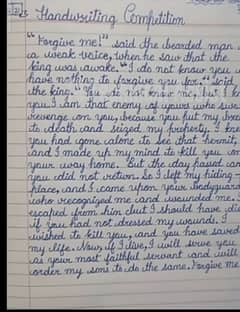 Handwriting Competition
"Forgive me!" said the bearded man
a weak voice, when he saw that the
king was awake. "I do not know you
have nothing to forgive you for," said
the king. "You do not know me, but I
you. I am that enemy of yours who
revenge on you, because you put my
to death and seized my property. I
you had gone alone to see that hermit,
and I made up my mind to kill you on
your way home. But the day passed
you did not return. So I left my hiding
place, and I came upon your bodyguard
who recognized me and wounded me. I
escaped from him but I should have
if you had not dressed my wounds. I
wished to kill you, and you have saved
my life. Now, if I live, I will serve you
as your most faithful servant and will
order my sons to do the same. Forgive me